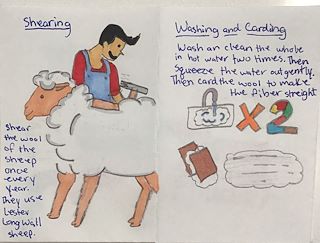 Shearing
Shear
the wool
of the
sheep
once
every
year.
They use
Lester
Longwall
sheep.
Washing and Carding
Wash an clean the whole
in hot water two times. Then
squeeze the water out gently.
Then card the wool to make
the fiber streight
X2